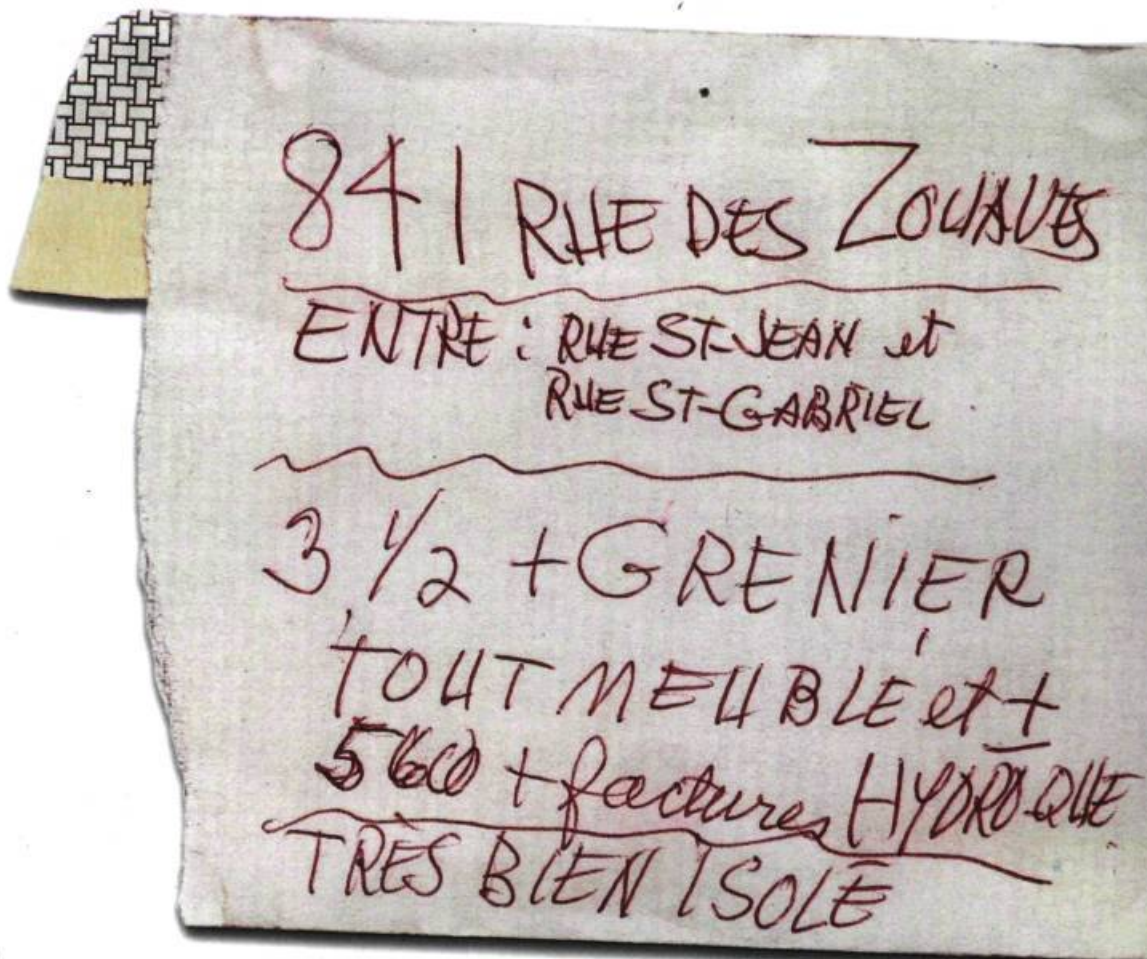 841 RUE DES ZOUAVES
ENTRE : RUE ST-JEAN et
RUE ST-GABRIEL
3 1/2 + GRENIER
TOUT MEUBLÉ et +
560 + factures HYDRO-QUE
TRÈS BIEN ISOLÉ